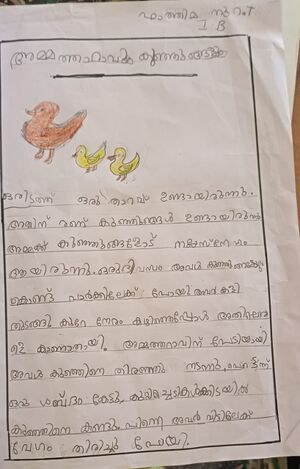 ഫാത്തിമ നൂറ.T
I B
അമ്മത്താറാവും കുഞ്ഞുങ്ങളും
ഒരിടത്ത് ഒരു താറാവ് ഉണ്ടായിരുന്നു.
അതിന് രണ്ട് കുഞ്ഞുങ്ങൾ ഉണ്ടായിരുന്നു
അമ്മക്ക് കുഞ്ഞുങ്ങളോട് നല്ല സ്നേഹം
ആയിരുന്നു. ഒരു ദിവസം അവൾ കുഞ്ഞുങ്ങളെയും
കൊണ്ട് പാർക്കിലേക്ക് പോയി അവർ കളി
തുടങ്ങി. കുറേ നേരം കഴിഞ്ഞപ്പോൾ അതിലൊരാ
ളെ കാണാതായി. അമ്മത്താറാവിന് പേടിയായി
അവൾ കുഞ്ഞിനെ തിരഞ്ഞു നടന്നു. പെട്ടന്ന്
ഒരു ശബ്ദം കേട്ടു. കുറ്റിച്ചെടികൾക്കിടയിൽ
കുഞ്ഞിനെ കണ്ടു. പിന്നെ അവർ വീട്ടിലേക്ക്
വേഗം തിരിച്ചു പോയി.